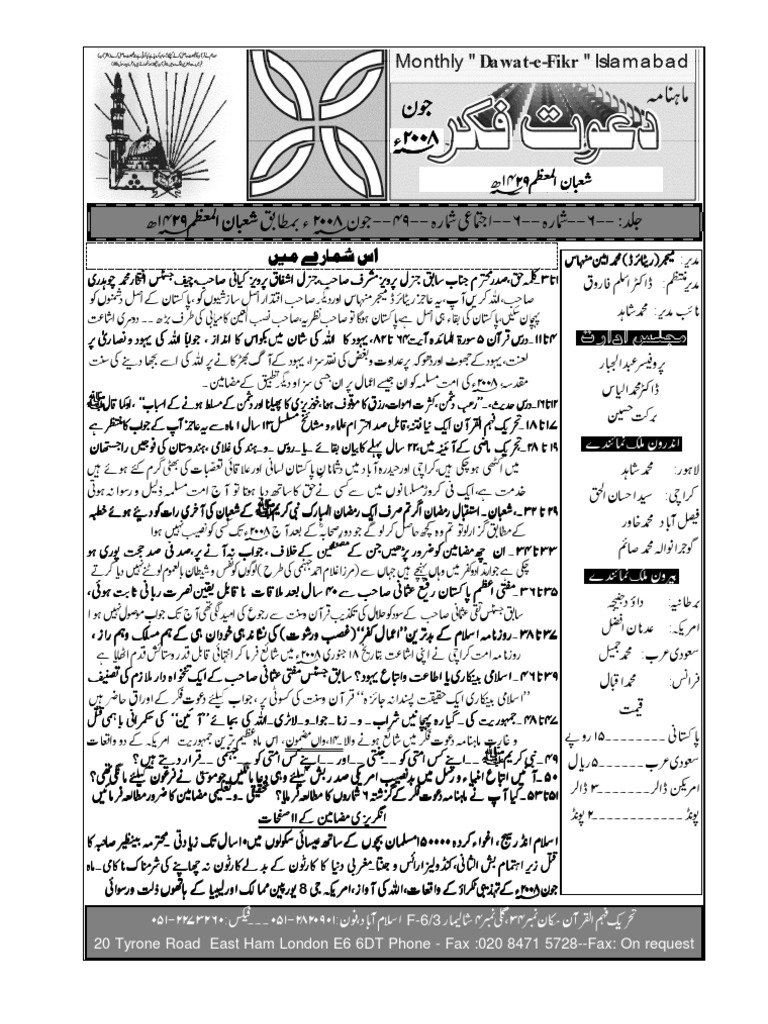 Monthly " Dawat-e-Fikr " Islamabad
ماہنامہ
دعوت فکر
جون
۲۰۰۸ء
شعبان المعظم ۱۴۲۹ھ
جلد: --۶-- شمارہ --۶-- اجتماعی شمارہ --۴۹-- جون ۲۰۰۸ء بمطابق شعبان المعظم ۱۴۲۹ھ
مدیر: میجر (ریٹائرڈ) محمد امین منہاس
مدیر منتظم: ڈاکٹر اسلم فاروق
نائب مدیر: محمد شاہد
مجلس ادارت
پروفیسر عبدالجبار
ڈاکٹر محمد الیاس
برکت حسین
اندرون ملک نمائندے
لاہور: محمد شاہد
کراچی: سید احسان الحق
فیصل آباد محمد خاور
گوجرانوالہ محمد صائم
بیرون ملک نمائندے
برطانیہ: داؤد
امریکہ: عدنان افضل
سعودی عرب: محمد جمیل
فرانس: محمد اقبال
قیمت
پاکستانی --------۱۵ روپے
سعودی عرب------۵ ریال
امریکن ڈالر ------۳ ڈالر
پونڈ ----------۲ پونڈ
اس شمارے میں
۱ تا ۳ کلمہ حق، صدر محترم جناب سابق جنرل پرویز مشرف صاحب، جنرل اشفاق پرویز کیانی صاحب، چیف جسٹس افتخار محمد چوہدری
صاحب، اللہ کریں آپ، یہ عاجز ریٹائرڈ میجر منہاس اور دیگر صاحب اقتدار اصل سازشیوں کو، پاکستان کے اصل دشمنوں کو
پہچان سکیں، پاکستان کی بقاء ہی اصل ہے پاکستان ہوگا تو صاحب نظریہ، صاحب نصب العین کامیابی کی طرف بڑھ -- دوسری اشاعت
۴ تا ۱۱۔ درس قرآن ۵ سورۃ المائدہ آیت ۶۴ تا ۸۲، یہود کا اللہ کی شان میں بکواس کا انداز، جواباً اللہ کی یہود و نصاریٰ پر
لعنت، یہود کے جھوٹ اور دھوکہ پر عداوت و بغض کی نقد سزا، یہود کے آگ بھڑکانے پر اللہ کی اسے بجھا دینے کی سنت
مقدسہ، ۲۰۰۸ء کی امت مسلمہ کو ان جیسے اعمال پر ان جیسی سزا و دیگر تطبیق کے مضامین۔
۱۲ تا ۱۶۔ درس حدیث، "رعب دشمن، کثرت اموات، رزق کا موقوف ہونا، خونریزی کا پھیلنا اور دشمن کے مسلط ہونے کے اسباب"، اوکما قال ﷺ
۱۷ تا ۱۸ تحریک فہم القرآن ایک نیا فتنہ، قابل صد احترام علماء و مشائخ مسلسل ۱۳ سال ۱ ماہ سے یہ عاجز آپ کے جواب کا منتظر ہے
۱۹ تا ۲۸۔ تحریک ماضی کے آئینہ میں، ۲۲ سال پہلے کا بیان بھائی یا۔ روس۔ و۔ ہند کی غلامی، ہندوستان کی فوجیں راجستھان
میں اکٹھی ہو چکی ہیں، کراچی اور حیدرآباد میں دشمنان پاکستان لسانی اور علاقائی تعصبات کی بھٹی گرم کئے ہوئے ہیں
خدمت ہے، ایک فی کروڑ مسلمانوں میں سے کسی نے حق کا ساتھ دیا ہوتا تو آج امت مسلمہ ذلیل و رسوا نہ ہوتی
۲۹ تا ۳۲۔ شعبان۔ استقبال رمضان اگر تم صرف ایک رمضان المبارک نبی کریم ﷺ کے شعبان کی آخری رات کو دیئے ہوئے خطبہ
کے مطابق گزار لو تو تم وہ کچھ حاصل کر لو گے جو دور صحابہؓ کے بعد آج ۲۰۰۸ء تک کسی کو نصیب نہیں ہوا
۳۳ تا ۳۴۔ ان چھ مضامین کو ضرور پڑھیں جن کے مصنفین کے خلاف، جواب نہ آنے پر، صد فی صد حجت پوری ہو
چکی ہے جو ارتداد و کفر میں وہاں پہنچے ہیں جہاں سے (مرزا غلام احمد جہنمی کی طرح) لوگوں کو نفس و شیطان بالعموم لوٹنے نہیں دیا کرتے
۳۵ تا ۳۶۔ مفتی اعظم پاکستان رفیع عثمانی صاحب سے ۴۰ سال بعد ملاقات نا قابل یقین نصرت ربانی ثابت ہوئی،
سابق جسٹس تقی عثمانی صاحب کے سود کو حلال کی تکذیب قرآن و سنت سے رجوع کی امید لگی تھی آج تک جواب موصول نہیں ہوا
۳۷ تا ۳۸۔ روزنامہ اسلام کے بدترین "اعمال کفر" (غصب و رشوت) کی نشاندہی خود ان ہی کے ہم مسلک و ہم راز،
روزنامہ امت کراچی نے اپنی اشاعت بتاریخ ۱۸ جنوری ۲۰۰۸ء میں شائع فرما کر انتہائی قابل قدر و ستائش قدم اٹھایا ہے
۳۹ تا ۴۶۔ اسلامی بینکاری یا اطاعت و اتباع یہود؟ سابق جسٹس مفتی عثمانی صاحب کے ایک تنخواہ دار ملازم کی تصنیف
"اسلامی بینکاری ایک حقیقت پسندانہ جائزہ" قرآن و سنت کی کسوٹی پر، جواب کیلئے دعوت فکر کے اوراق حاضر ہیں
۴۷ تا ۴۸۔ جمہوریت کی۔ گیارہ پہچانیں شراب۔ و۔ زنا۔ جوا۔ و۔ لاٹری۔ اللہ کی بجائے "آئین" کی حکمرانی باہمی قتل
و غارت ماہنامہ دعوت فکر میں شائع ہونے والا ۱۴۔واں مضمون، اس ماہ عظیم ترین جمہوریت امریکہ کے دو واقعات
۴۹۔ نبی کریم ﷺ۔ اپنے کس امتی کو۔ جنتی۔ اور۔ اپنے کس امتی کو۔ جہنمی۔ قرار دیتے ہیں؟
۵۰۔ آئیں اتباع انبیاء و رسل میں بدنصیب امریکی صدر بش کیلئے وہی دعا مانگیں جو موسیٰ نے فرعون کیلئے مانگی تھی؟
۵۱ تا ۵۳۔ کیا آپ نے ماہنامہ دعوت فکر کے گزشتہ ۶ شماروں کا مطالعہ فرمایا؟ تحقیقی۔ و۔ تعلیمی مضامین کا ضرور مطالعہ فرمائیں
انگریزی مضامین کے ۱۱ صفحات
اسلام انڈر سیج، اغواء کردہ ۱۵۰۰۰۰ مسلمان بچوں کے ساتھ عیسائی سکولوں میں ۱۰ سال تک زیادتی۔ محترمہ بینظیر صاحبہ کا
قتل زیر اہتمام بش الثانی، کنڈولیزا رائس و مغربی دنیا کا کارٹون کے بدلے کارٹون نہ چھاپنے کی شرمناک ناکامی۔ ماہ
جون ۲۰۰۸ء کے تہذیبی ٹکراؤ کے واقعات، اللہ کی آواز، امریکہ۔ جی 8 یورپین ممالک اور لیبیا کے ہاتھوں ذلت و رسوائی
تحریک فہم القرآن۔ مکان نمبر ۳۴، گلی نمبر ۴ شالیمار F-6/3 اسلام آباد، فون: ۲۸۲۰۹۰۱-۰۵۱---فیکس: ۲۲۷۳۲۶۰-۰۵۱
20 Tyrone Road East Ham London E6 6DT Phone - Fax :020 8471 5728--Fax: On request